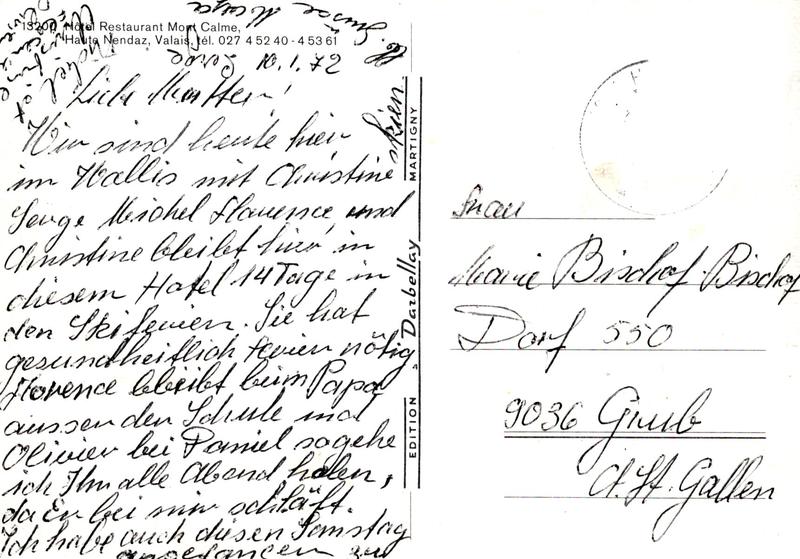 13200 Hôtel Restaurant Mont Calme,
Haute Nendaz, Valais, tél. 027 4 52 40 - 4 53 61
10.1.72
Liebe Mutter!
Wir sind heute hier
im Wallis mit Christine
Serge Michel Florence, und
Christine bleibt hier in
diesem Hotel 14 Tage in
den Skiferien. Sie hat
gesundheitlich Ferien nötig
Florence bleibt beim Papa
aussen den Schule und
Olivier bei Daniel so gehe
ich Ihn alle Abend holen,
da Er bei mir schläft.
Ich habe auch diesen Samstag
angefangen zu
skien.
EDITION Darbellay MARTIGNY
Frau
Marie Bischof-Bischof
Dorf 550
9036 Grub
Ct. St. Gallen